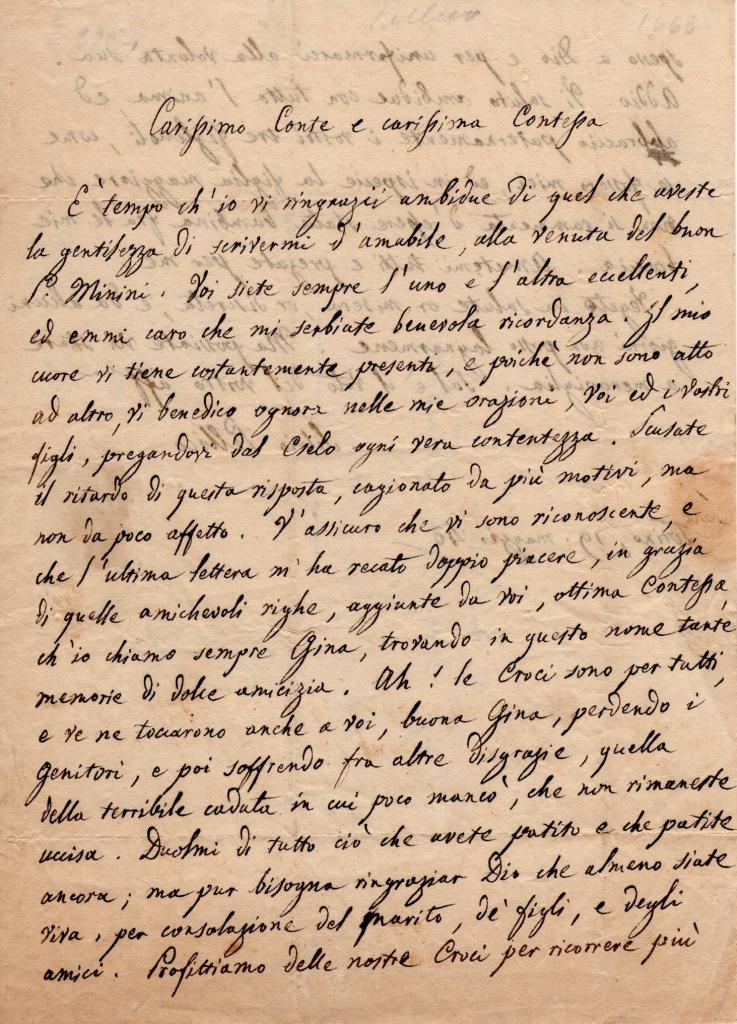 Carissimo Conte e carissima Contessa
E' tempo ch'io vi ringrazii ambidue di quel che aveste
la gentilezza di scrivermi d'amabile, alla venuta del buon
P.e Minini. Voi siete sempre l'uno e l'altra eccellenti,
ed emmi caro che mi serbiate benevola ricordanza. Il mio
cuore vi tiene costantemente presenti, e poichè non sono atto
ad altro, vi benedico ognora nelle mie orazioni, voi ed i vostri
figli, pregandovi dal Cielo ogni vera contentezza. Scusate
il ritardo di questa risposta, cagionato da più motivi, ma
non da poco affetto. V'assicuro che vi sono riconoscente, e
che l'ultima lettera m'ha recato doppio piacere, in grazia
di quelle amichevoli righe, aggiunte da voi, ottima Contessa,
ch'io chiamo sempre Gina, trovando in questo nome tante
memorie di dolce amicizia. Ah! le Croci sono per tutti,
e ve ne toccarono anche a voi, buona Gina, perdendo i
genitori, e poi soffrendo fra altre disgrazie, quella
della terribile caduta in cui poco mancò, che non rimaneste
uccisa. Duolmi di tutto ciò che avete patito e che patite
ancora; ma pur bisogna ringraziar Dio che almeno siate
viva, per consolazione del marito, de' figli, e degli
amici. Profittiamo delle nostre Croci per ricorrere più